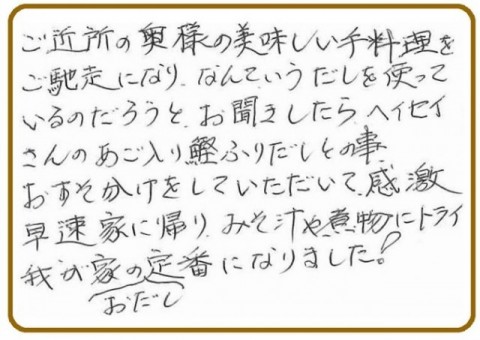 ご近所の奥様の美味しい手料理を
ご馳走になり、なんていうだしを使って
いるのだろうと、お聞きしたら、ヘイセイ
さんのあご入り鰹ふりだしとの事
おすそわけをしていただいて、感激
早速家に帰り、みそ汁や煮物にトライ
我が家の定番になりました!
おだし